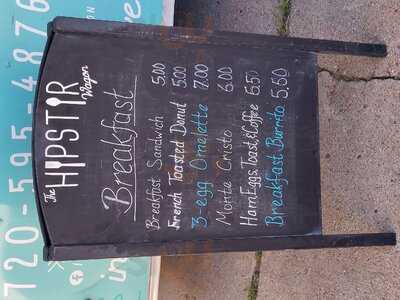 The
HIPSTIR
Wagon
Breakfast
Breakfast Sandwich 5.00
French Toasted Donut 5.00
3-egg Omelette 7.00
Monte Cristo 6.00
Ham, Eggs, Toast & Coffee 6.50
Breakfast Burrito 5.50
720-595-4876